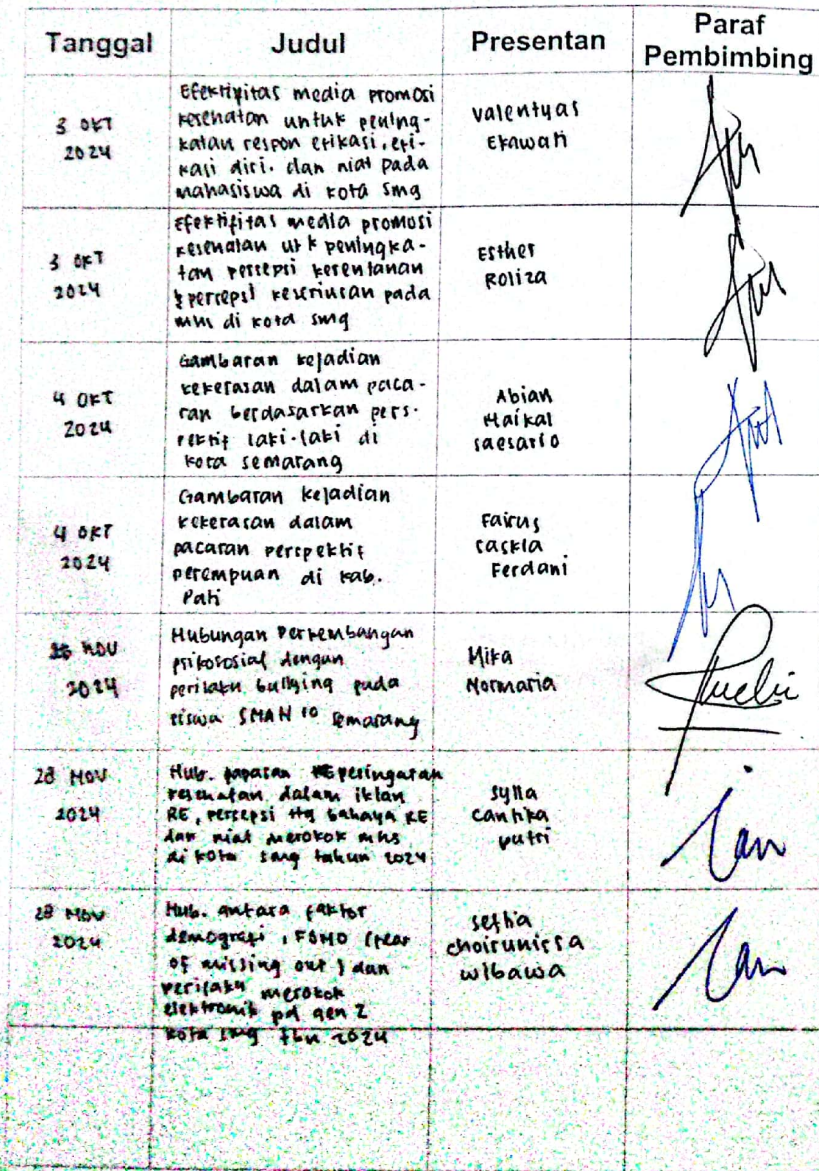 Tanggal
Judul
Presentan
Paraf
Pembimbing
3 OKT
2024
Efektifitas media promosi
kesehatan untuk pening-
katan respon efikasi, efi-
kasi diri, dan niat pada
mahasiswa di kota smg
Valentyas
Ekawati
3 OKT
2024
Efektifitas media promosi
kesehatan utk peningka-
tan persepsi kerentanan
& persepsi keseriusan pada
mhs di kota smg
Esther
Roliza
4 OKT
2024
Gambaran kejadian
kekerasan dalam paca-
ran berdasarkan pers-
pektif laki-laki di
kota semarang
Abian
Haikal
Saesario
4 OKT
2024
Gambaran kejadian
kekerasan dalam
pacaran perspektif
perempuan di kab.
Pati
Fairus
Saskia
Ferdani
NOV
2024
Hubungan Perkembangan
psikososial dengan
perilaku bullying pada
siswa SMAN 10 Semarang
Mika
Normaria
28 NOV
2024
Hub. paparan peringatan
kesehatan dalam iklan
RE, persepsi ttg bahaya RE
dan niat merokok mhs
di kota smg tahun 2024
Sylla
Cantika
putri
28 NOV
2024
Hub. antara faktor
demografi, FOMO (fear
of missing out) dan
perilaku merokok
elektronik pd gen Z
kota smg thn 2024
Choirunissa
Wibawa